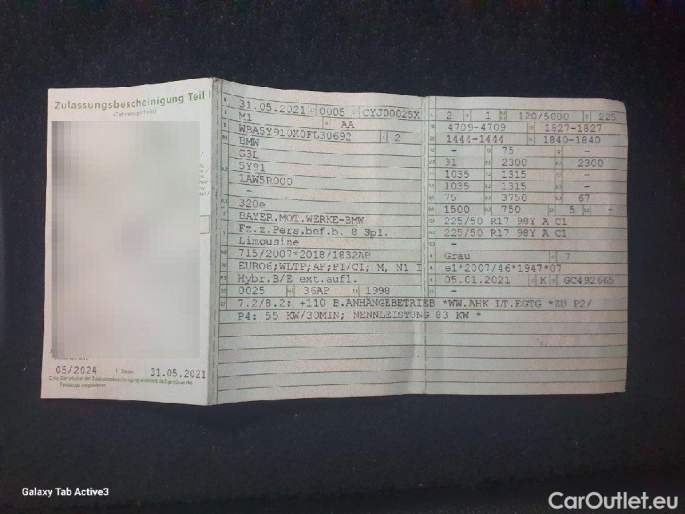 Zulassungsbescheinigung Teil I
05/2024
31.05.2021
31.05.2021 0005 CYJD00025X
M1 AA
2
BMW
G3L
5Y91
1AW5R000
-
320e
BAYER.MOT.WERKE-BMW
Fz.z.Pers.bef.b. 8 Spl.
Limousine
715/2007*2018/1832AP
EURO6;WLTP;AP;PI/CI; M, N1 I
Hybr.B/E ext.aufl.
0025 36AP 1998
7.2/8.2: +110 B.ANHÄNGEBETRIEB *WW.AHK LT.EGTG *ZU P2/
P4: 55 KW/30MIN; NENNLEISTUNG 83 KW *
2 1 120/5000 225
4709-4709 1827-1827
1444-1444 1840-1840
- 75 -
31 2300 2300
1035 1315 -
1035 1315 -
75 3750 67
1500 750 5 -
225/50 R17 98Y A C1
225/50 R17 98Y A C1
-
Grau 7
e1*2007/46*1947*07
05.01.2021 K GC492665
Galaxy Tab Active3
CarOutlet.eu